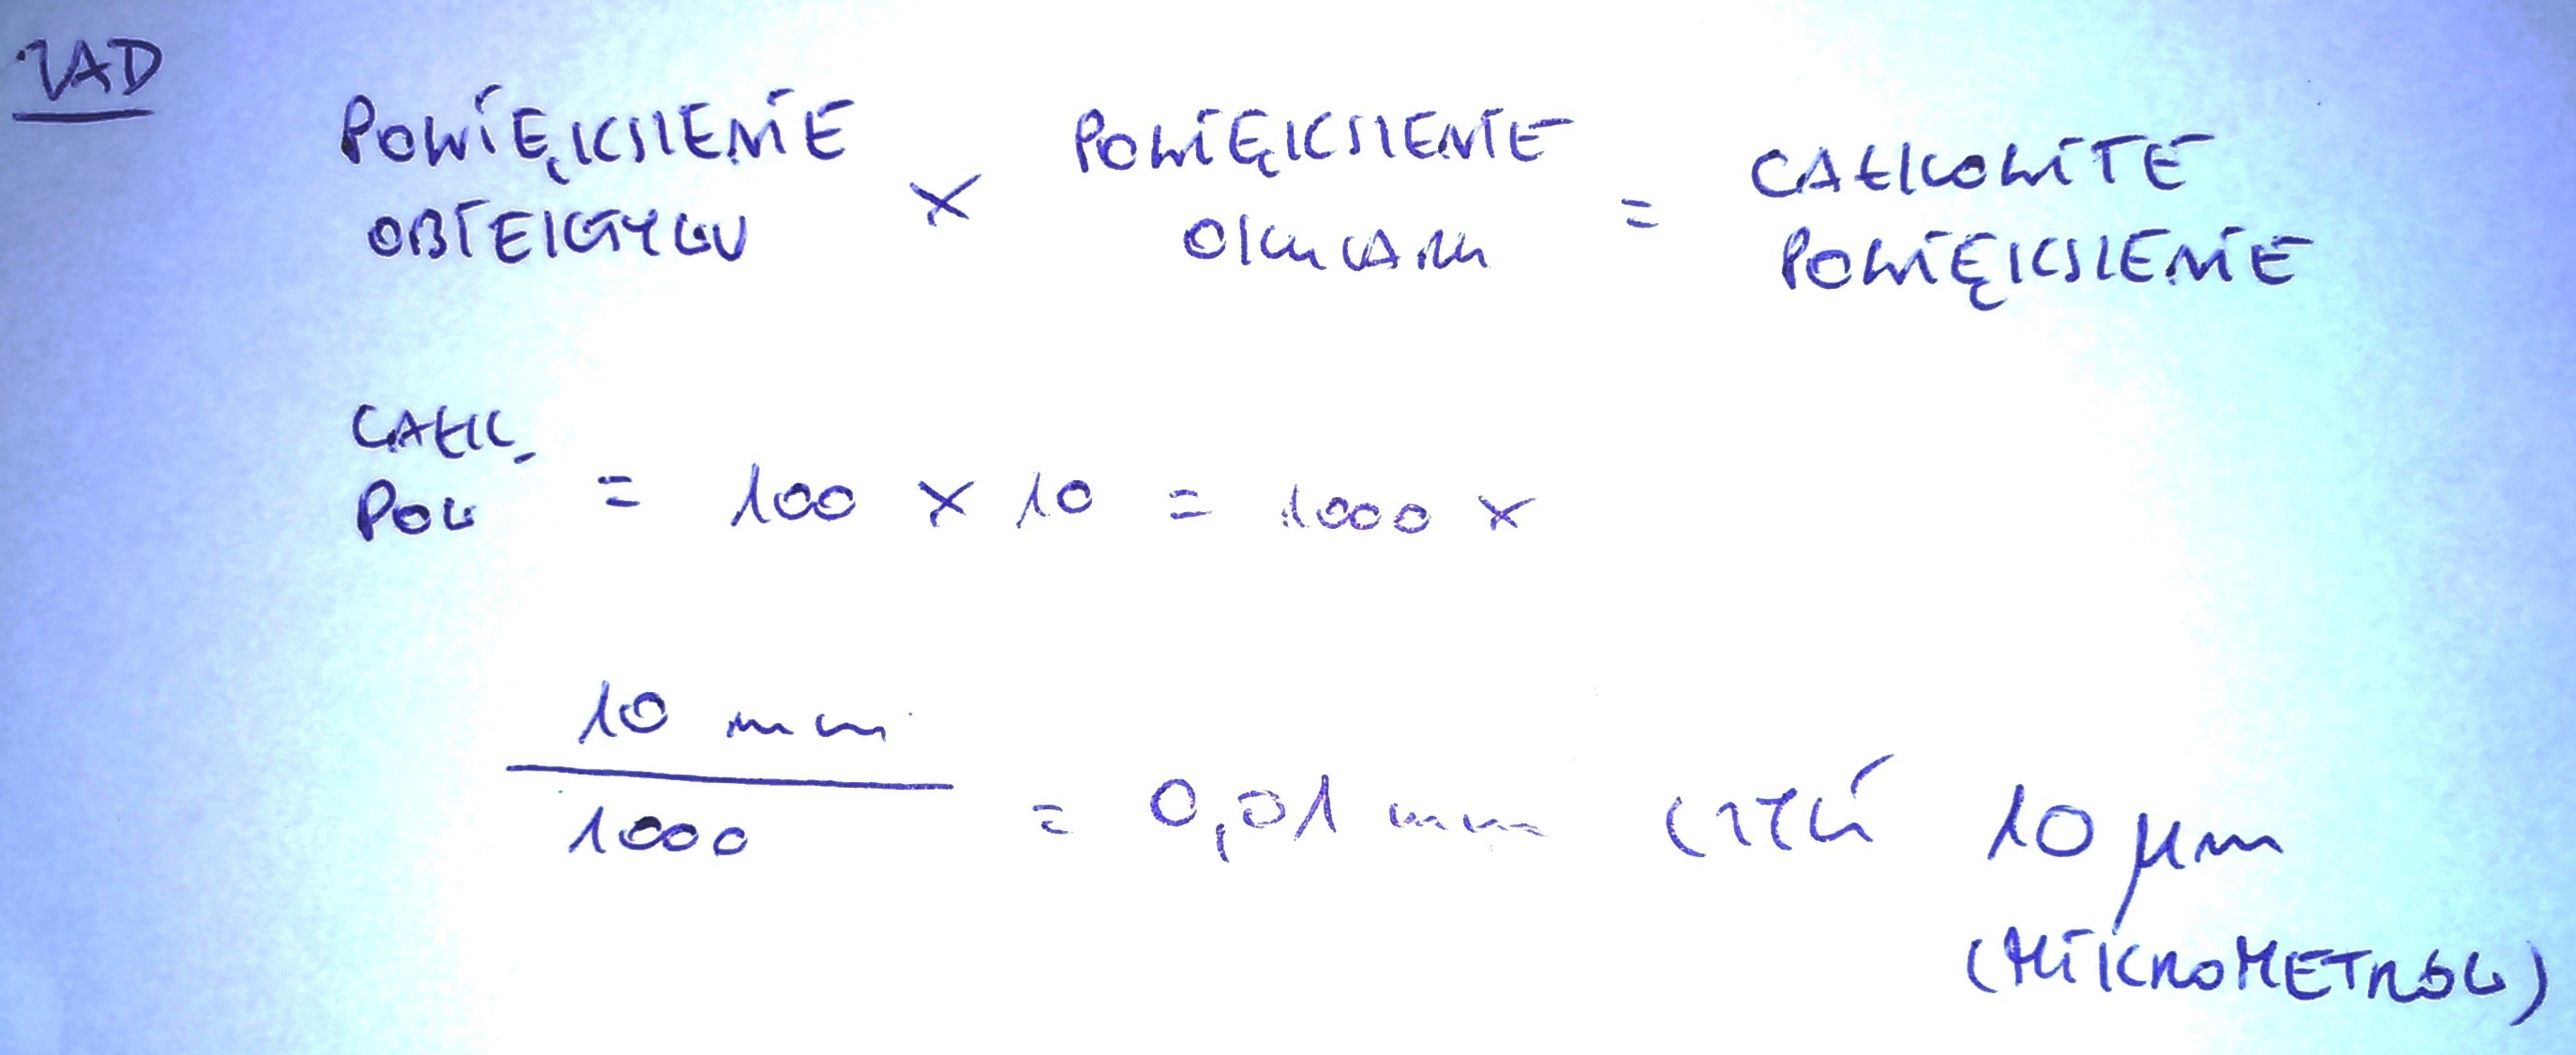 ZAD
POWIĘKSZENIE OBIEKTYWU × POWIĘKSZENIE OKULARU = CAŁKOWITE POWIĘKSZENIE
CAŁK. POW = 100 × 10 = 1000 ×
10 mm
1000
= 0,01 mm CZYLI 10 μm
(MIKROMETRÓW)